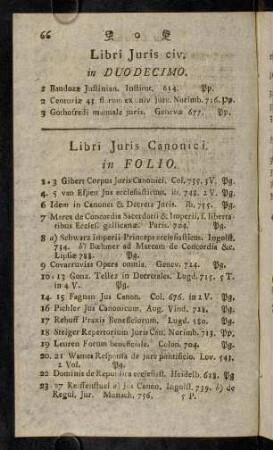 66
Libri Juris civ.
in DUODECIMO.
1 Baudozæ Justinian. Institut. 614. Pp.
2 Centuriæ 43 ex univ jure. Norimb. 716. Pp.
3 Gothofredi manuale juris. Geneva 677. Pp.
Libri Juris Canonici.
in FOLIO.
1.3 Gibert Corpus Juris Canonici. Col. 735. 3V. Pg.
4.5 van Espen Jus ecclesiasticum. ib. 748. 2 V. Pg.
6 Idem in Canones & Decreta Juris. ib. 755. Pg.
7 Marca de Concordia Sacerdotii & Imperii, s. liberta-
tibus Ecclesi. gallicanæ. Paris. 704. Pg.
8 a) Schwarz Imperii Princeps ecclesiasticus. Ingolst.
734. b) Bœhmer ad Marcam de Concordia &c.
Lipsiæ 788. Pg.
9 Covarruvias Opera omnia. Genev. 724. Pg.
10.13 Gonz. Tellez in Decretales. Lugd. 715. 5 T.
in 4 V. Pg.
14. 15 Fagnan Jus Canon. Col. 676. in 2 V. Pg.
16 Pichler Jus Canonicum. Aug. Vind. 728. Pg.
17 Rebuff Praxis Beneficiorum. Lugd. 580. Pg.
18 Steiger Repertorium Juris Can. Norimb. 713. Pp.
19 Leuren Forum beneficiale. Colon. 704. Pg.
20. 21 Wames Responsa de jure pontificio. Lov. 543.
2 Vol. Pg.
22 Dominis de Republica ecclesiast. Heidelb. 618. Pg.
23 Reiffenstuel a) Jus Canon. Ingolst. 739. b) de
Regul. Jur. Monach. 756. 5 P.